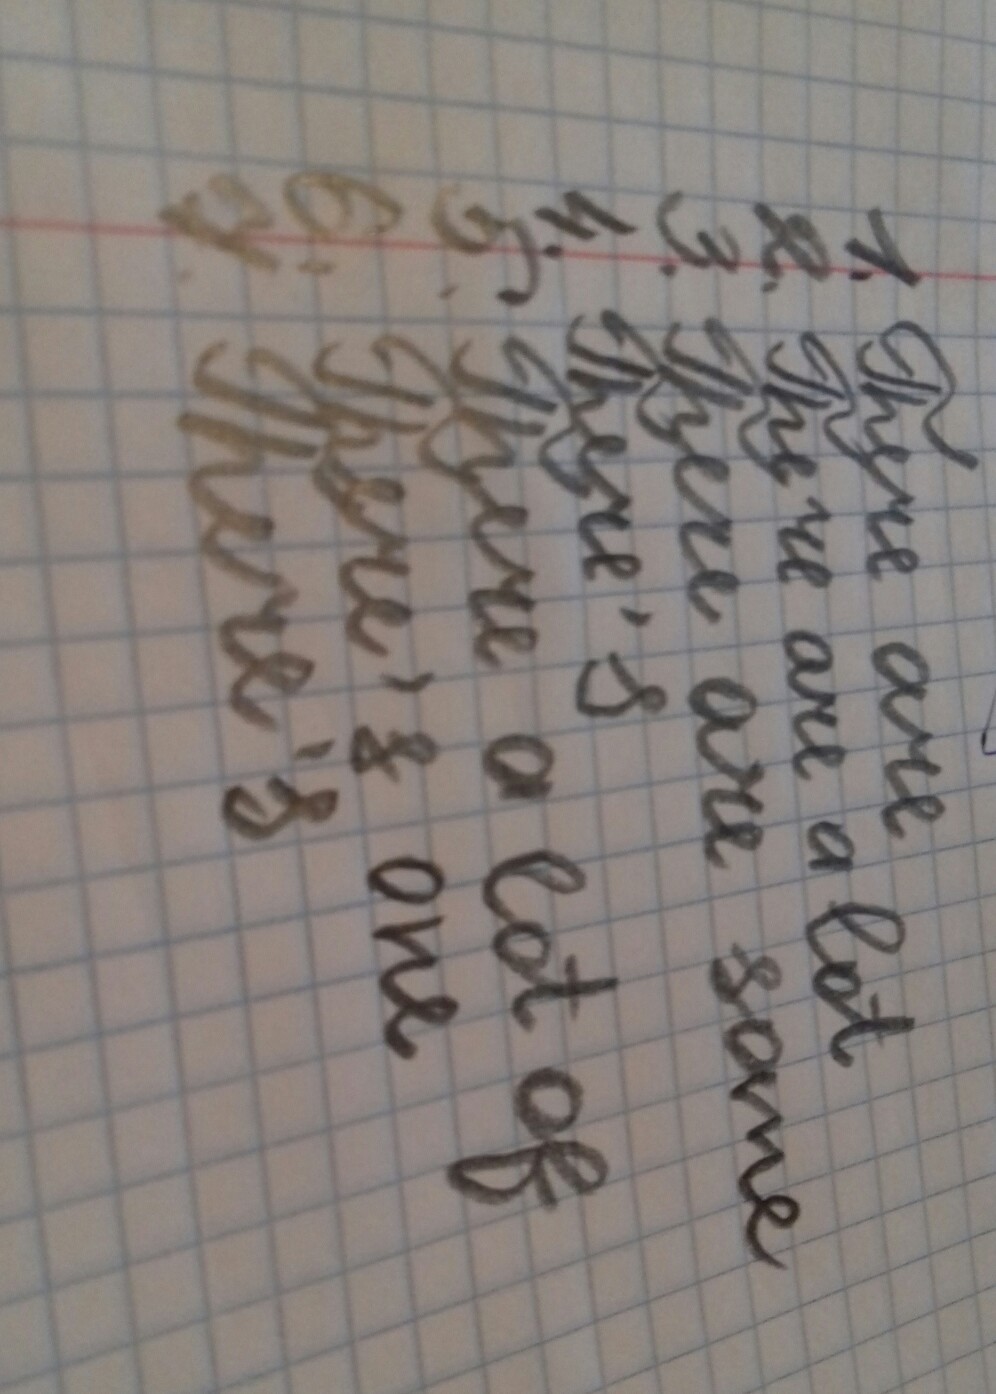 1. There are
2. There are a lot
3. There are some
4. There's
5. There a lot of
6. There's one
7. There's